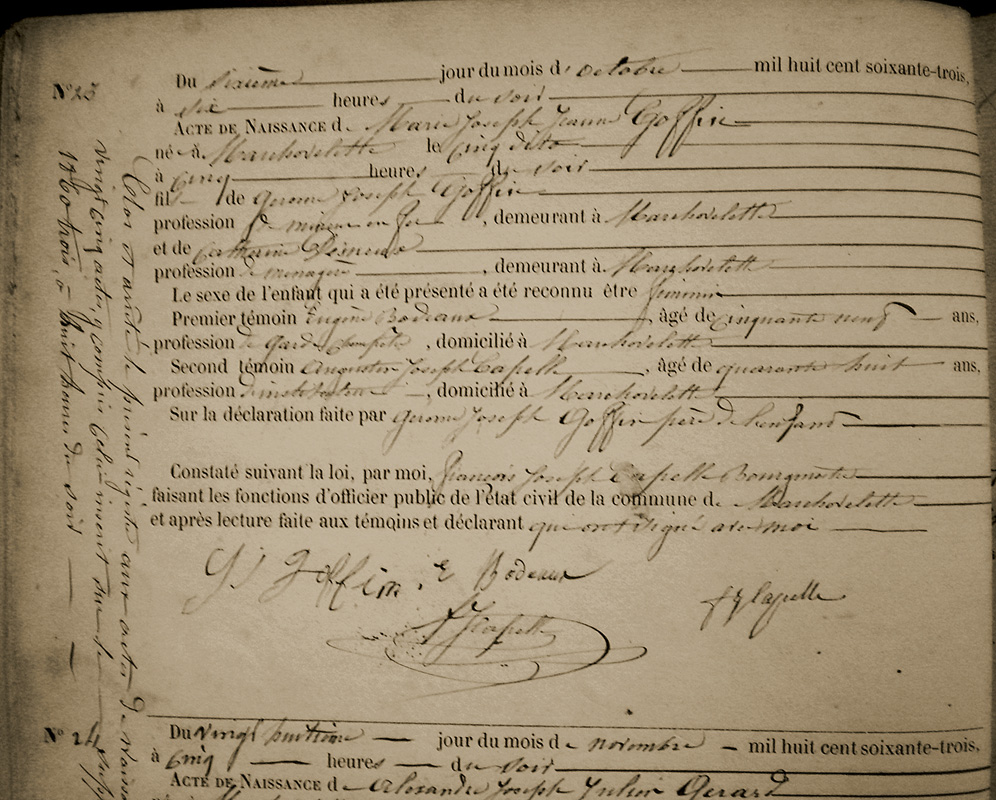 N° 23
Du sixième jour du mois d'octobre mil huit cent soixante-trois,
à six heures du soir
ACTE DE NAISSANCE de Marie Joseph Jeanne Goffin
née à Marchovelette le cinq dito
à cinq heures du soir
fil de Gerome Joseph Goffin
profession de mineur en fer, demeurant à Marchovelette
et de Catherine
profession de menagère, demeurant à Marchovelette
Le sexe de l'enfant qui a été présenté a été reconnu être féminin
Premier témoin Eugène Bodeaux, âgé de cinquante neuf ans,
profession de garde champète, domicilié à Marchovelette
Second témoin Augustin Joseph Capelle, âgé de quarante huit ans,
profession d'instituteur, domicilié à Marchovelette
Sur la déclaration faite par Gerome Joseph Goffin père de l'enfant
Constaté suivant la loi, par moi, François Joseph Capelle Bourgmestre
faisant les fonctions d'officier public de l'état civil de la commune de Marchovelette
et après lecture faite aux témoins et déclarant que ont signé avec moi
G J Goffin E Bodeaux
fJ Capelle
Capelle
Clos et arrêté le présent registre aux actes de naissance
vingt cinq actes y compris celui inscrit sur
1860 trois, à huit heures du soir
N° 24
Du vingt huitième jour du mois de novembre mil huit cent soixante-trois,
à cinq heures du soir
ACTE DE NAISSANCE de Alexandre Joseph Julien Gerard